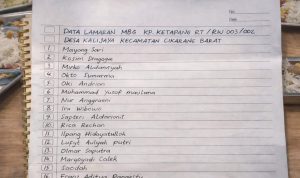 DATA LAMARAN MBG KP. KETAPANG RT / RW 003/002
DESA KALIJAYA KECAMATAN CIKARANG BARAT
1 Mayong Sari
2 Kasim Dragoga
3 Mirko Aldiansyah
4 Okto Isymarma
5 Oki Andrian
6 Muhammad Yusof Maulana
7 Nur Anggraeni
8 Ira Wibowo
9 Saptri Aldiansyah
10 Rica Rechan
11 Ilpang Hidayatulloh
12 Lufyt Auliyah putri
13 Olmar Saputra
14 Margayadi Calek
15 Saodah
16 Franz Aditya